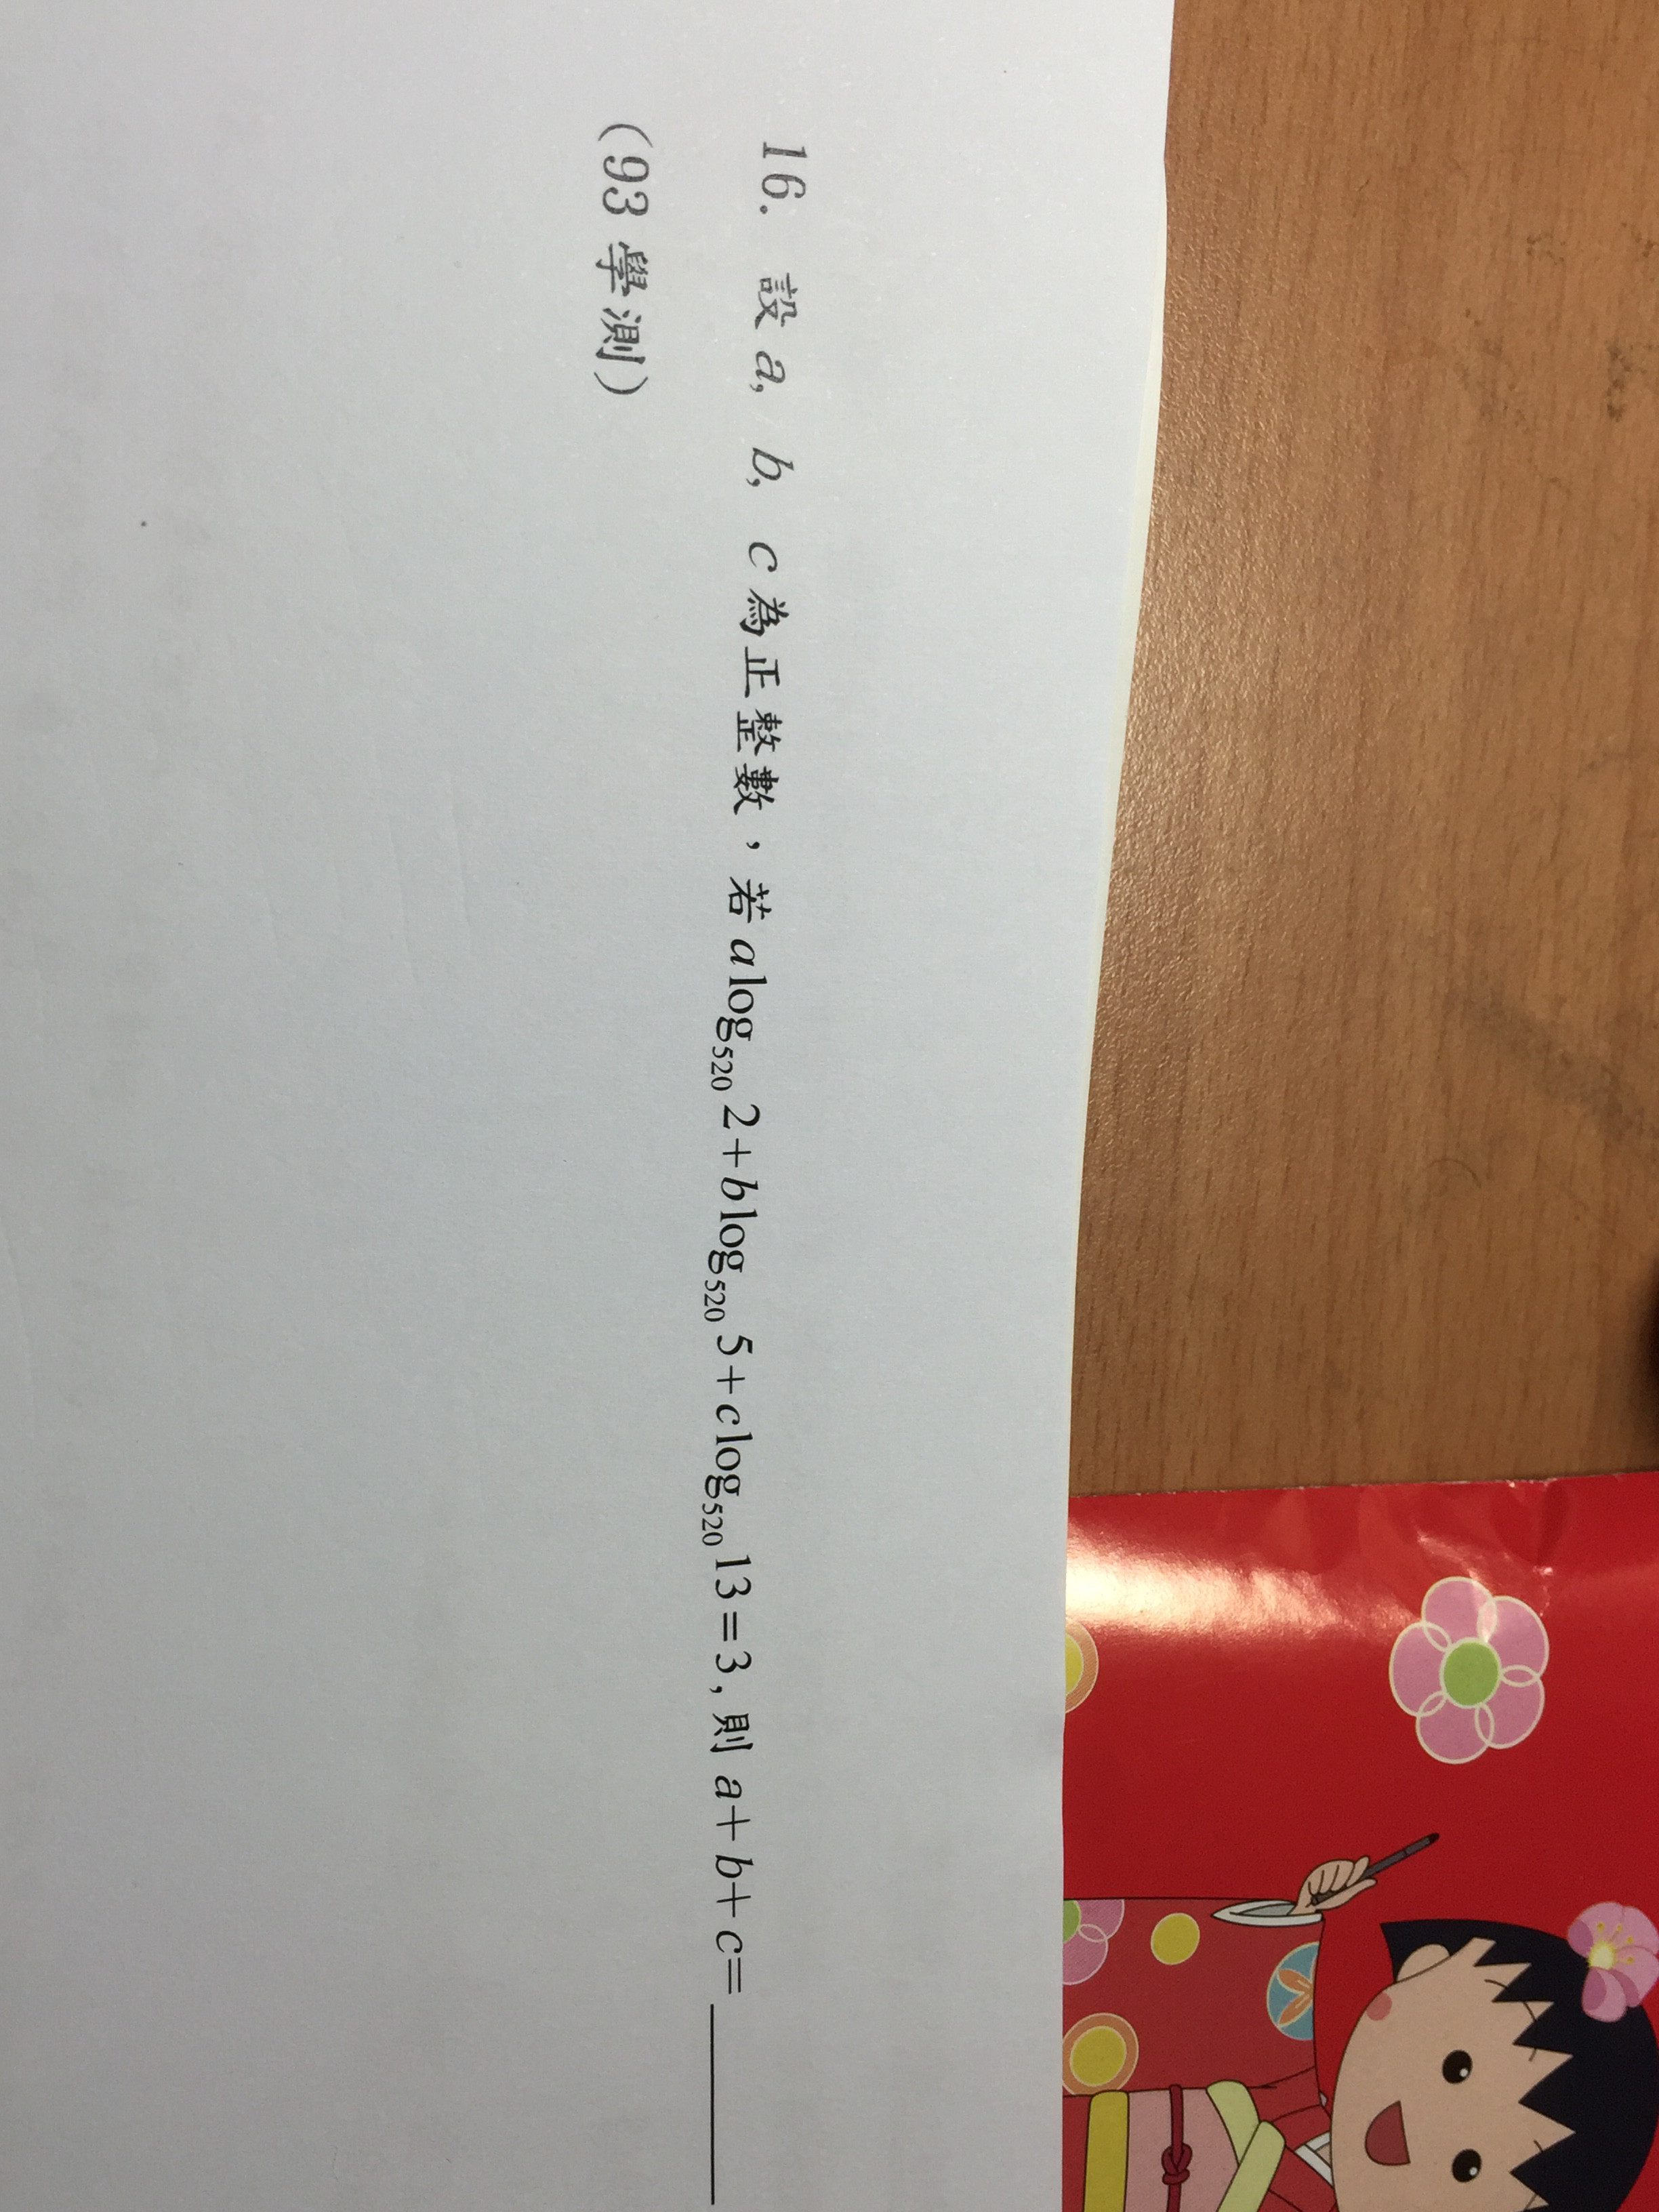 16. 設 a, b, c 為正整數，若 a log₅₂₀ 2 + b log₅₂₀ 5 + c log₅₂₀ 13 = 3, 則 a + b + c = ____
(93 學測)